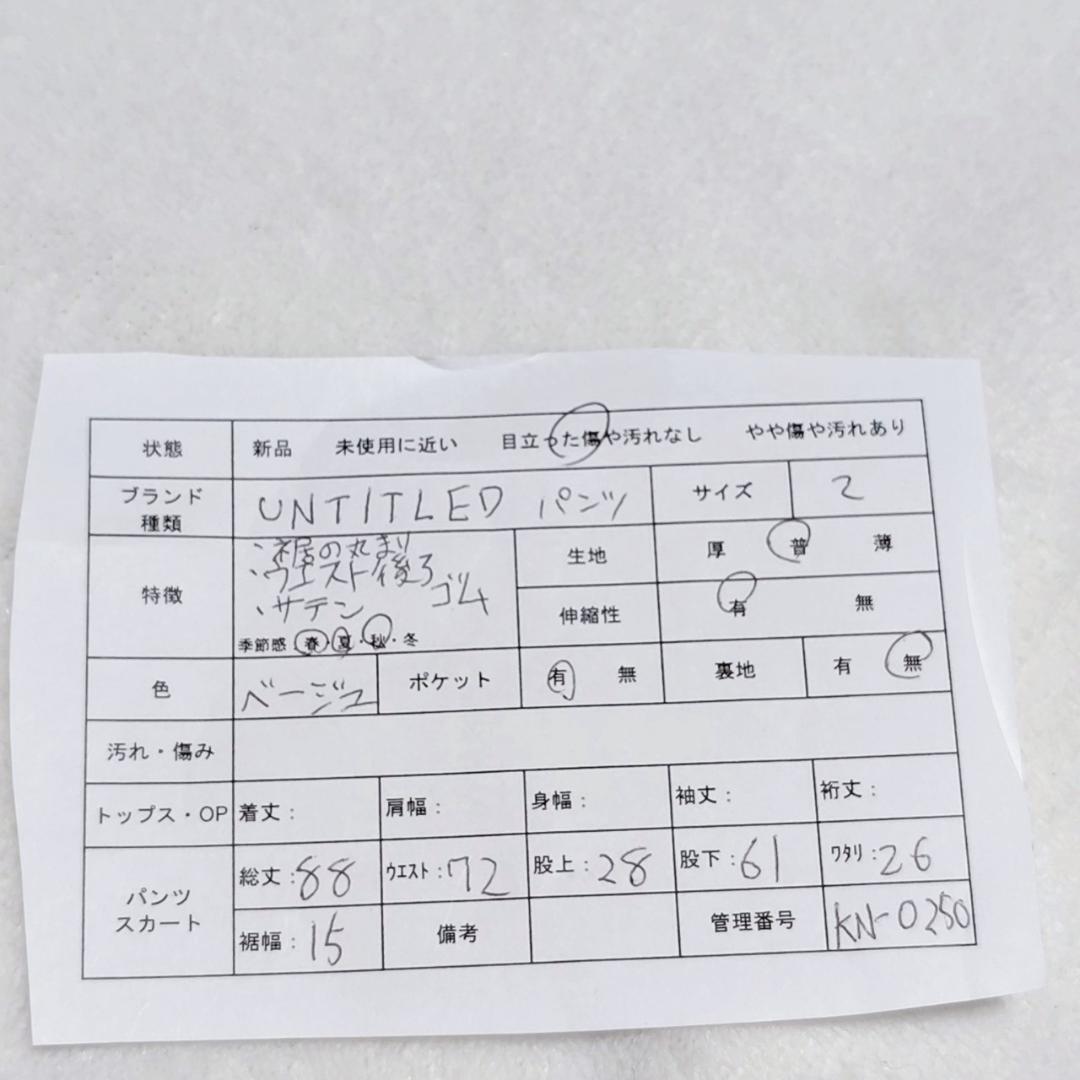 状態 新品 未使用に近い 目立った傷や汚れなし やや傷や汚れあり
ブランド 種類 UNTITLED パンツ サイズ 2
特徴 ・裾の丸まり
・ウエスト後ろ
ゴム
・サテン
季節感 春・夏・秋・冬
生地 厚 普 薄
伸縮性 有 無
色 ベージュ ポケット 有 無 裏地 有 無
汚れ・傷み
トップス・OP 着丈: 肩幅: 身幅: 袖丈: 裄丈:
パンツ スカート 総丈:88 ウエスト:72 股上:28 股下:61 ワタリ:26
裾幅:15 備考 管理番号 KN-0250